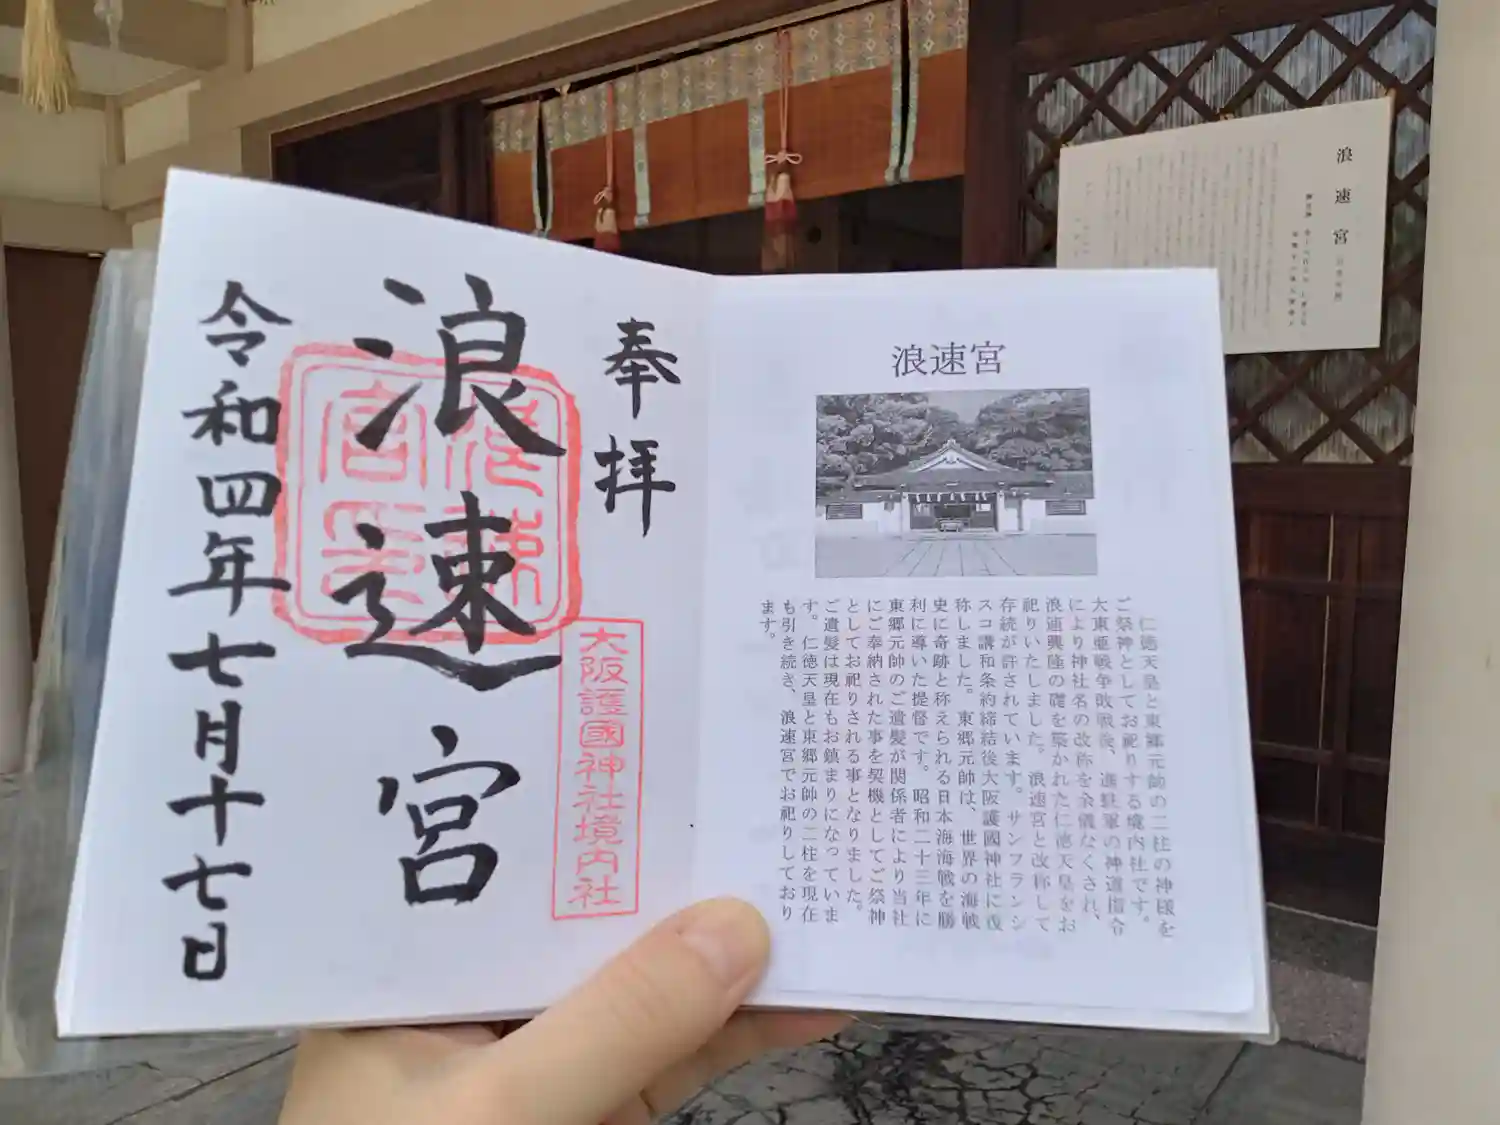 奉拝
浪速宮
大阪護國神社境内社
令和四年七月十七日
浪速宮
仁徳天皇と東郷元帥の二柱の神様を
ご祭神としてお祀りする境内社です。
大東亜戦争敗戦後、進駐軍の神道指令
により神社名の改称を余儀なくされ、
浪速興隆の礎を築かれた仁徳天皇をお
祀りいたしました。浪速宮と改称して
存続が許されています。サンフランシ
スコ講和条約締結後大阪護國神社に復
称しました。東郷元帥は、世界の海戦
史に奇跡と称えられる日本海海戦を勝
利に導いた提督です。昭和二十三年に
東郷元帥のご遺髪が関係者により当社
にご奉納された事を契機としてご祭神
としてお祀りされる事となりました。
ご遺髪は現在もお鎮まりになっていま
す。仁徳天皇と東郷元帥の二柱を現在
も引き続き、浪速宮でお祀りしており
ます。
浪速宮